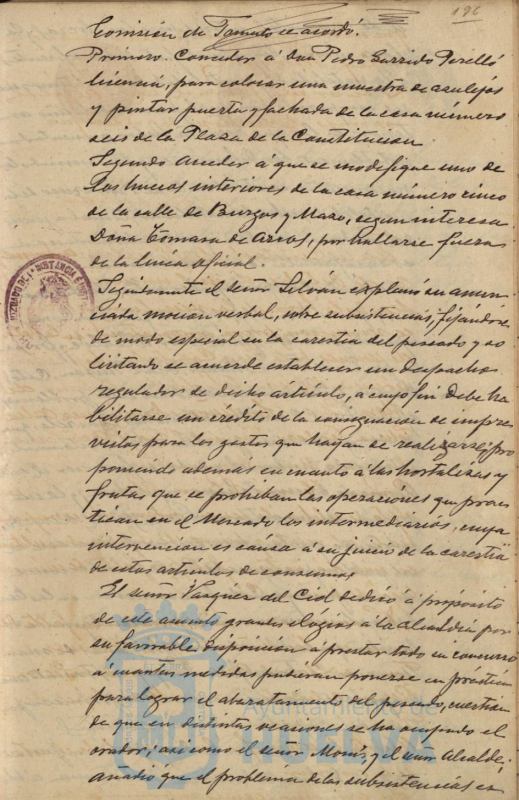 196
Comisión de Fomento se acordó.
Primero. Conceder á Don Pedro Garrido Perelló
licencia, para colocar una muestra de azulejos
y pintar puerta y fachada de la casa número
seis de la Plaza de la Constitucion.
Segundo Acceder á que se modifique uno de
los huecos interiores de la casa número cinco
de la calle de Burgos y Mazo, segun interesa
Doña Tomasa de Arcos, por hallarse fuera
de la linea oficial.
Seguidamente el señor explanó su anun-
ciada mocion verbal, sobre subsistencias, fijandose
de modo especial en la carestia del pescado y so
licitando se acuerde establecer un despacho
regulador de dicho artículo, á cuyo fin debe ha
bilitarse un crédito de la consignacion de impre
vistos para los gastos que hayan de realizarse, pro
poniendo ademas en cuanto á las hortalizas y
frutas que se prohiban las operaciones que prac
tican en el Mercado los intermediarios, cuya
intervencion es causa á su juicio de la carestia
de estos articulos de consumo.
El señor Vazquez del Cid dedicó á propósito
de este asunto grandes elógios á la Alcaldia por
su favorable disposicion á prestar todo su concurso
á cuantas medidas pudieran ponerse en práctica
para lograr el abaratamiento del pescado, cuestion
de que en distintas ocasiones se ha ocupado el
orador; asi como el señor y el señor Alcalde;
añadio que el problema de las subsistencias es
JUZGADO DE 1ª INSTANCIA É
Ayuntamiento de
HUELVA